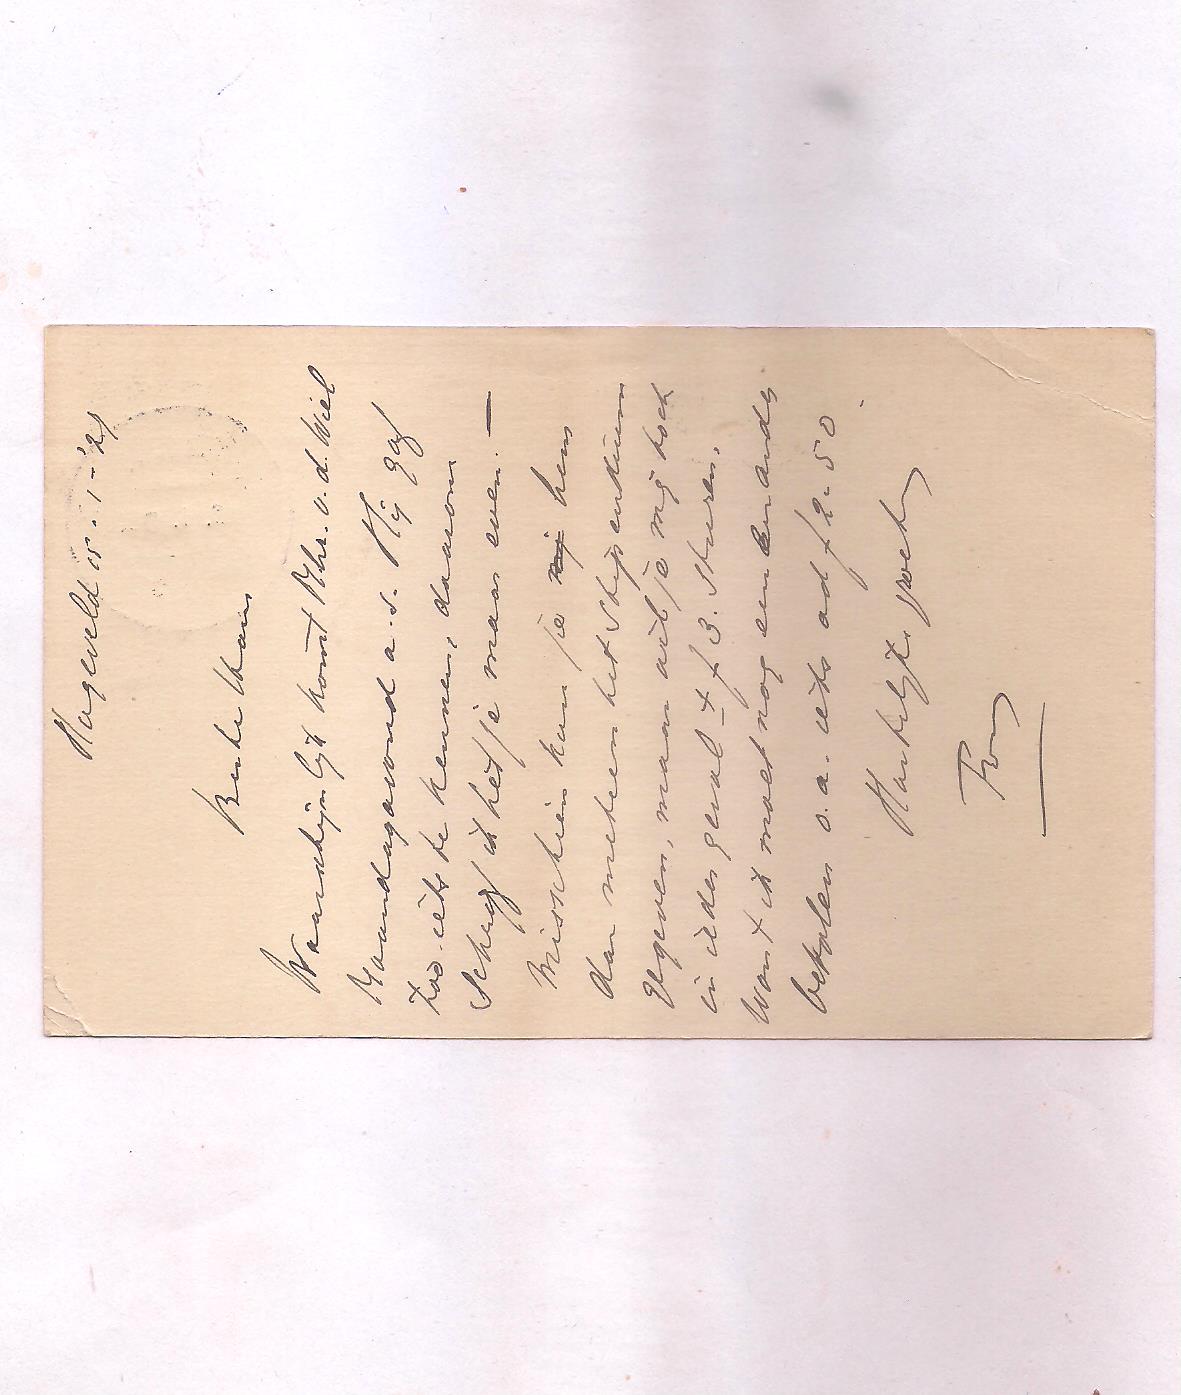 Hageveld 15.-1-'21
Beste Hans
Waarschijnlijk komt Mhr. v.d. Wiel
Maandagavond a.s. Hij gaf
zoo-iets te kennen, daarom
schrijf ik het je maar even. —
Misschien kun je mij hem
dan meteen het stipendium
geven, maar wil je mij toch
in ieder geval ± f 3. sturen,
want ik moet nog een en ander
betalen o.a. iets ad f 2.50.
Hartelijke groeten